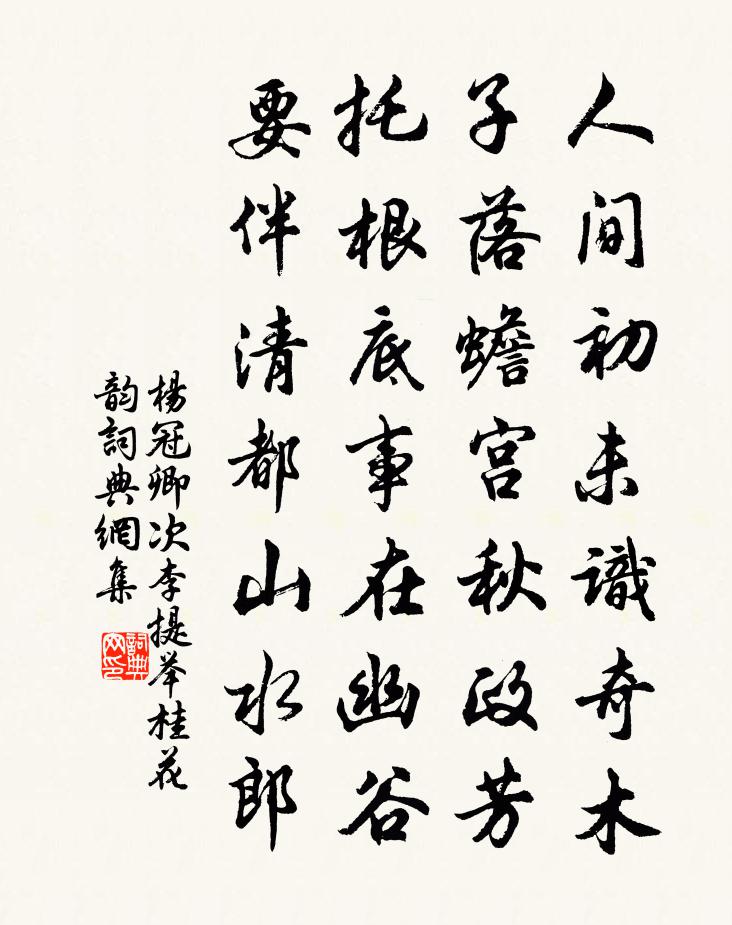 人间初未識奇木
子落蟾宫秋政芳
托根底事在幽谷
要伴清都山水郎
楊冠卿次李提举桂花
韵詞典網集
詞典网印